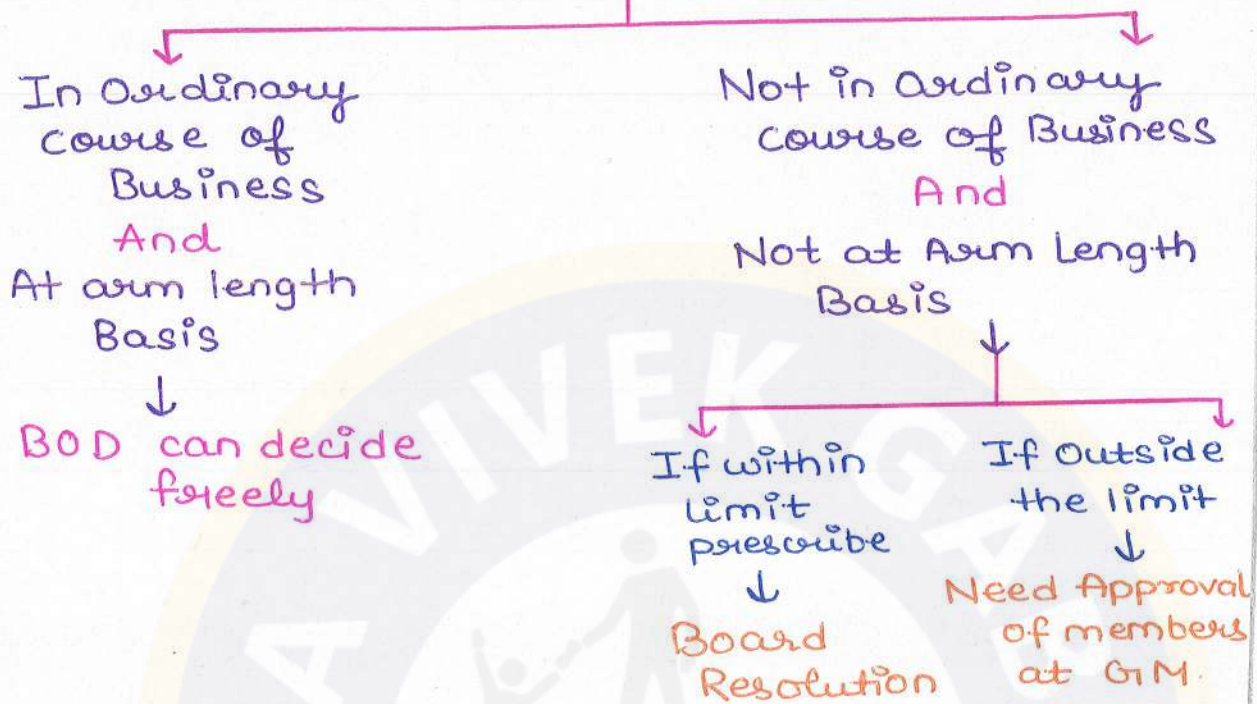 In Ordinary
course of
Business
And
At arm length
Basis
BOD can decide
freely
Not in ordinary
course of Business
And
Not at Arm Length
Basis
If within
limit
prescribe
Board
Resolution
If outside
the limit
Need Approval
of members
at GM.
A VIVEK GA